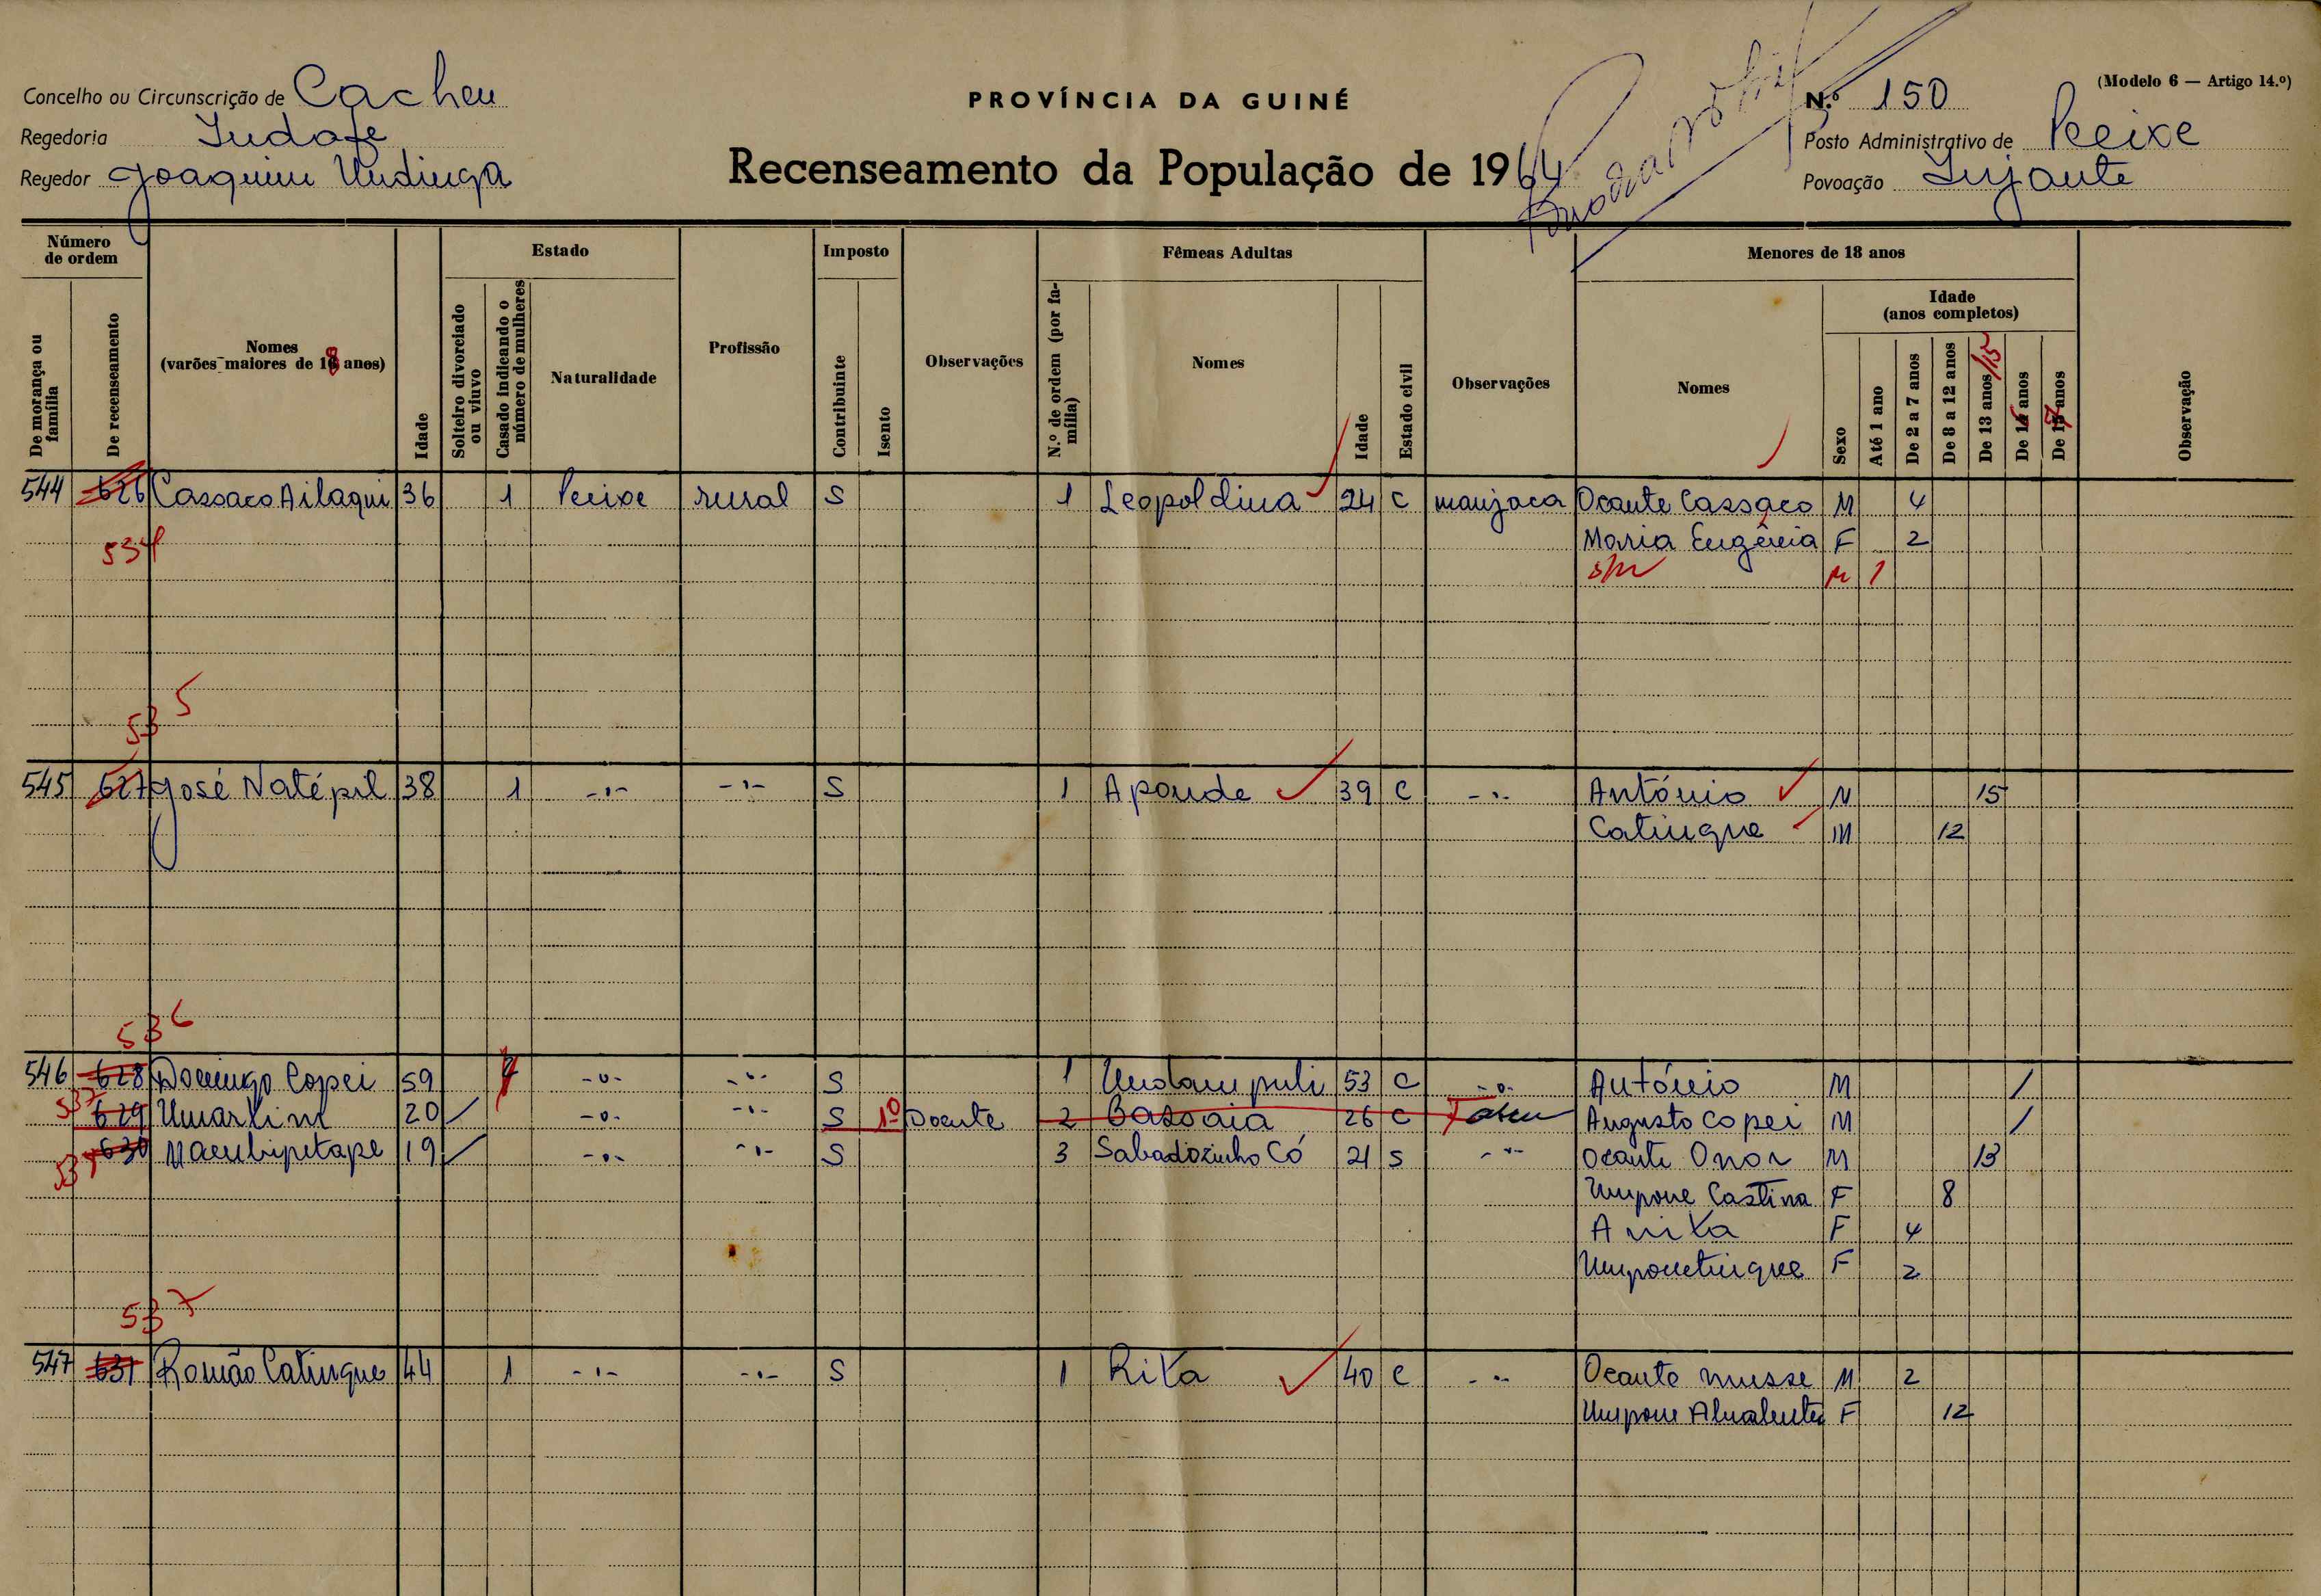 Concelho ou Circunscrição de Cacheu
Regedoria Judafe
Regedor Joaquim Undinga
PROVÍNCIA DA GUINÉ
Recenseamento da População de 1964
(Modelo 6 — Artigo 14.º)
N.º 150
Posto Administrativo de Peixe
Povoação Injante
Número de ordem
De morança ou família
De recenseamento
Nomes
(varões maiores de 18 anos)
Idade
Estado
Solteiro divorciado ou viuvo
Casado indicando o número de mulheres
Naturalidade
Profissão
Imposto
Contribuinte
Isento
Observações
Fêmeas Adultas
N.º de ordem (por família)
Nomes
Idade
Estado civil
Observações
Menores de 18 anos
Nomes
Idade
(anos completos)
Sexo
Até 1 ano
De 2 a 7 anos
De 8 a 12 anos
De 13 anos /15
De 16 anos
De 17 anos
Observação
544 626 Cassaco Ailaqui 36 1 Peixe rural S 1 Leopoldina 24 C manjaca Ocante Cassaco M 4
534 Maria Eugêneia F 2
s/n M 1
535
545 627 José Natépil 38 1 -"- -"- S 1 Aponde 39 C -"- António M 15
Catinque M 12
536
546 628 Domingo Copei 59 -"- -"- S 1 53 C -"- António M /
537 629 Umarlim 20 -"- -"- S 1º Doente 2 Bassaia 26 C Augusto Copei M /
630 19 -"- -"- S 3 Sabadozinho Có 21 S -"- Ocante Onor M 13
Umpone Castina F 8
Anita F 4
Umponetinque F 2
537
547 631 Romão Catinque 44 1 -"- -"- S 1 Rita 40 C -"- Ocante musse M 2
Umpone F 12